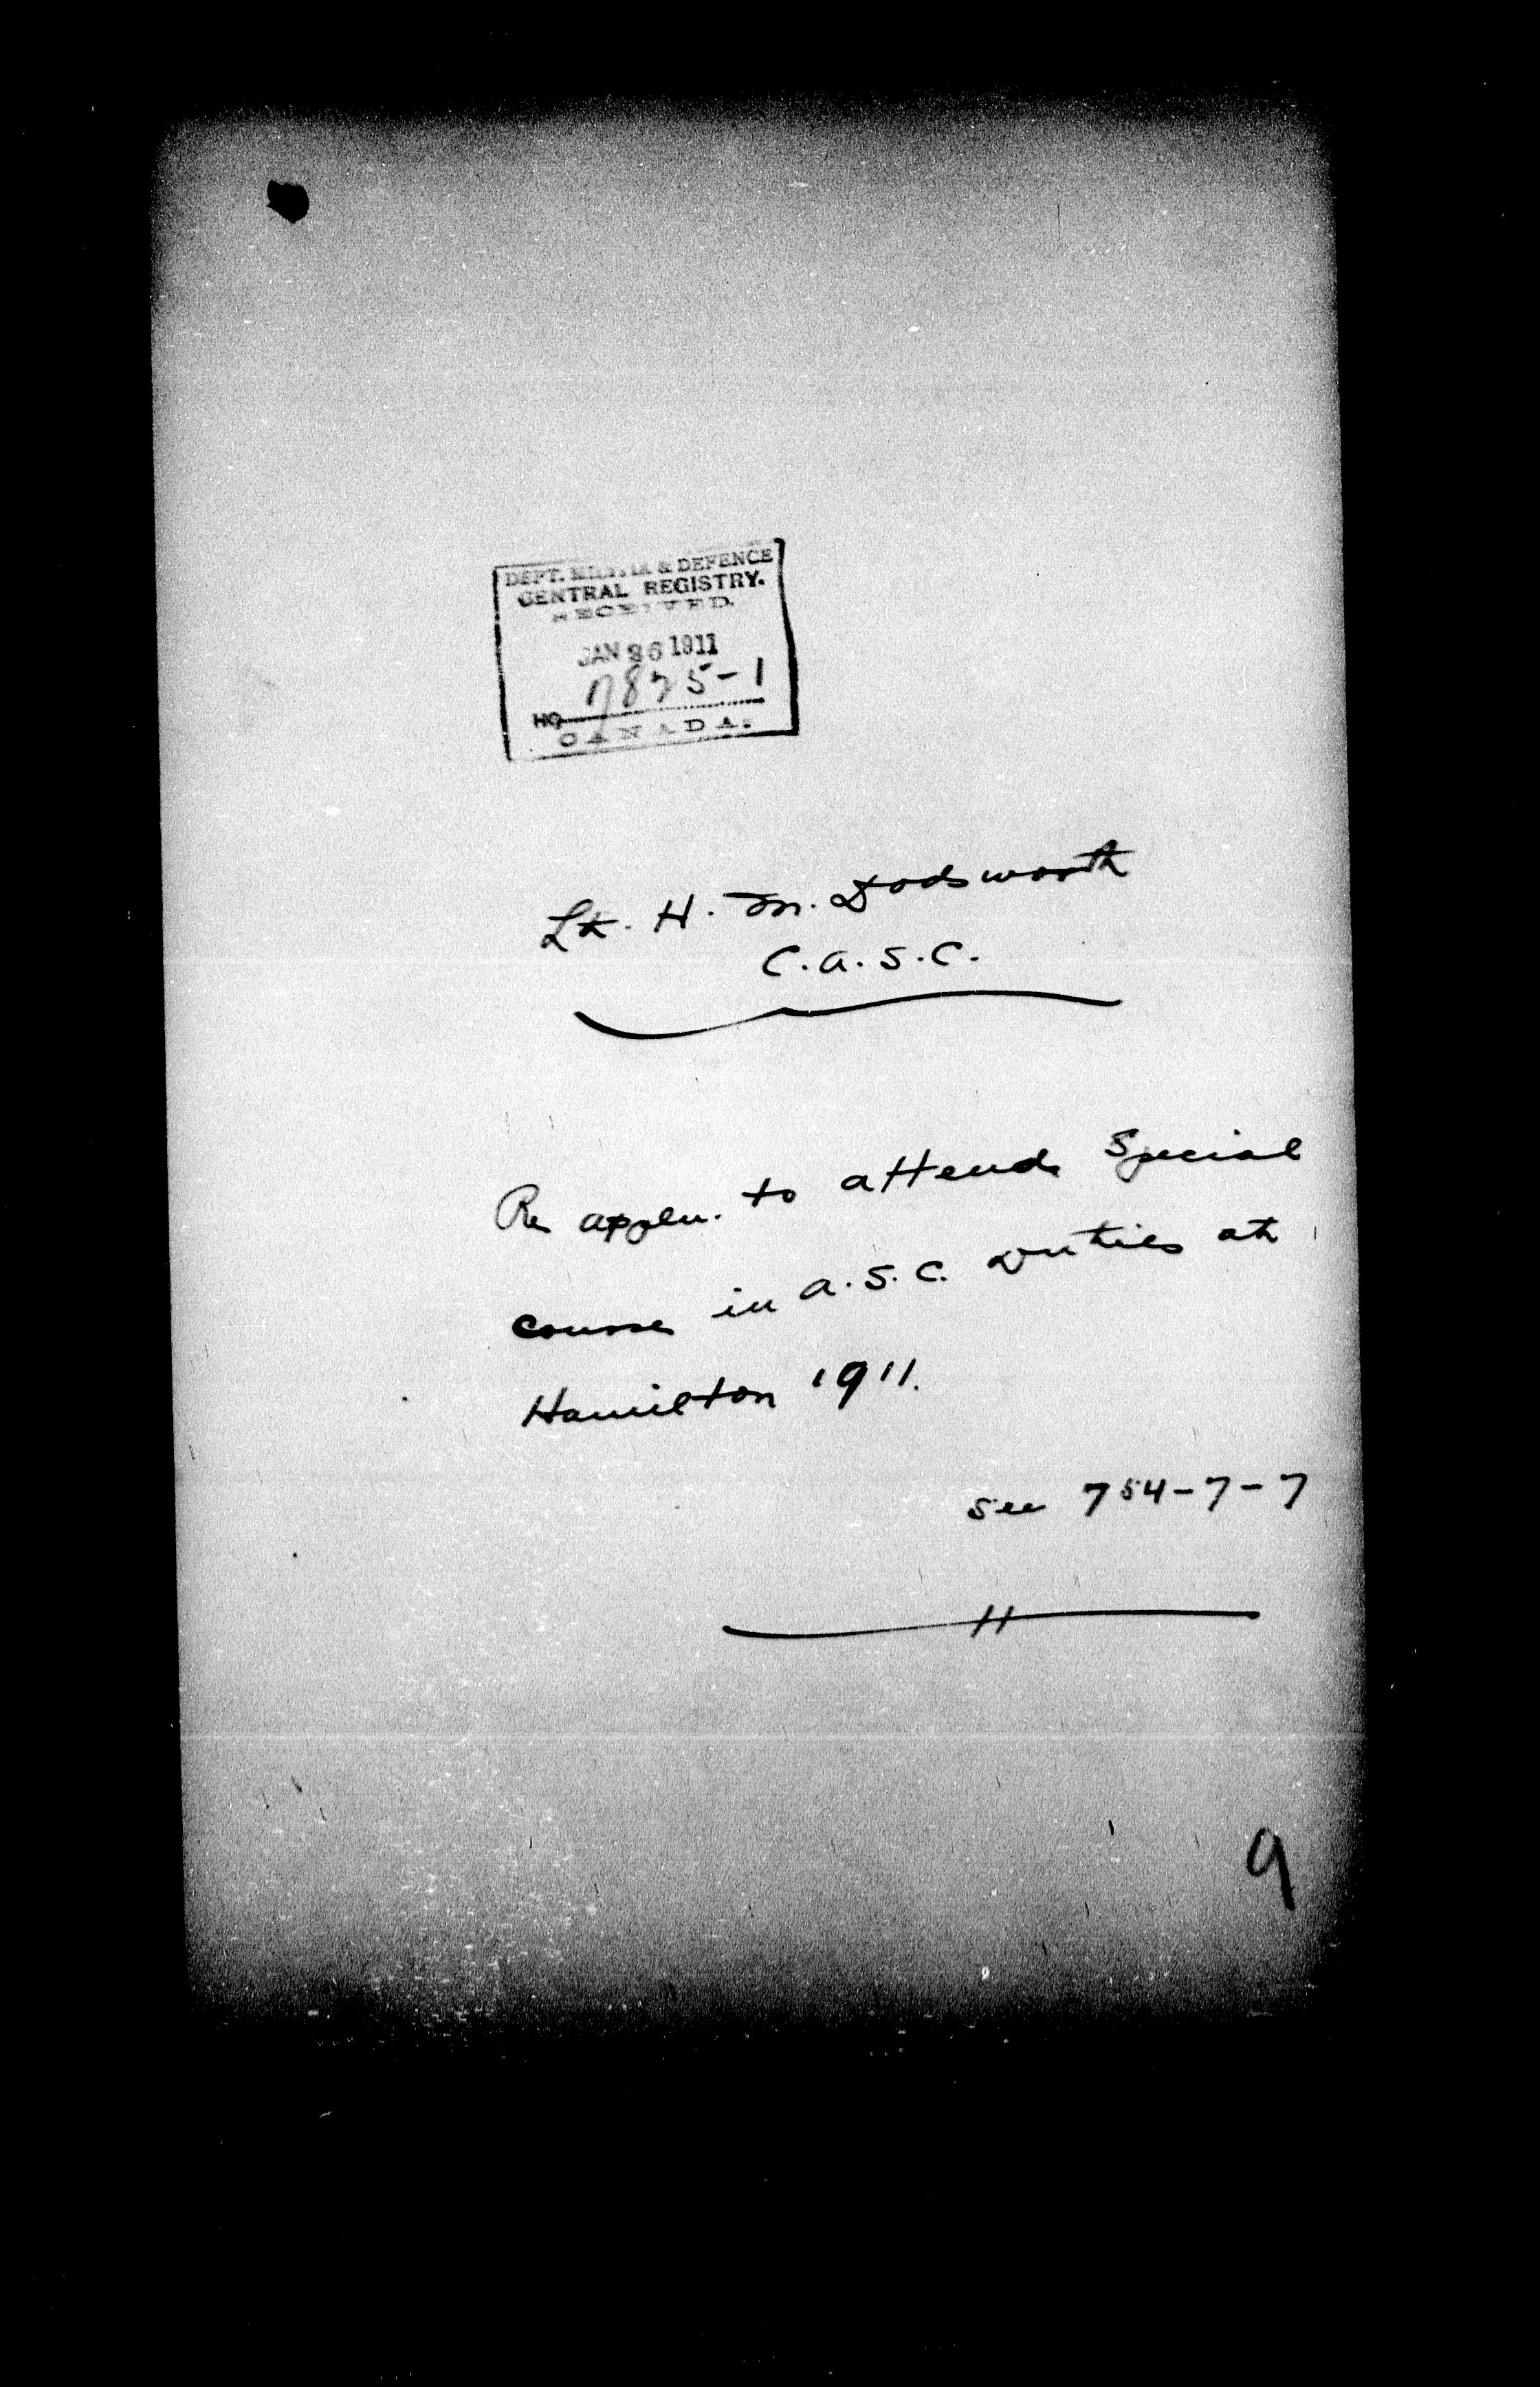 DEPT. MILITIA & DEFENCE
CENTRAL REGISTRY.
RECEIVED.
JAN 26 1911
HQ 7825-1
CANADA.
Lt. H. M. Dodsworth
C.A.S.C.
Re appln. to attend Special
course in A.S.C. Duties at
Hamilton 1911.
See 754-7-7
9